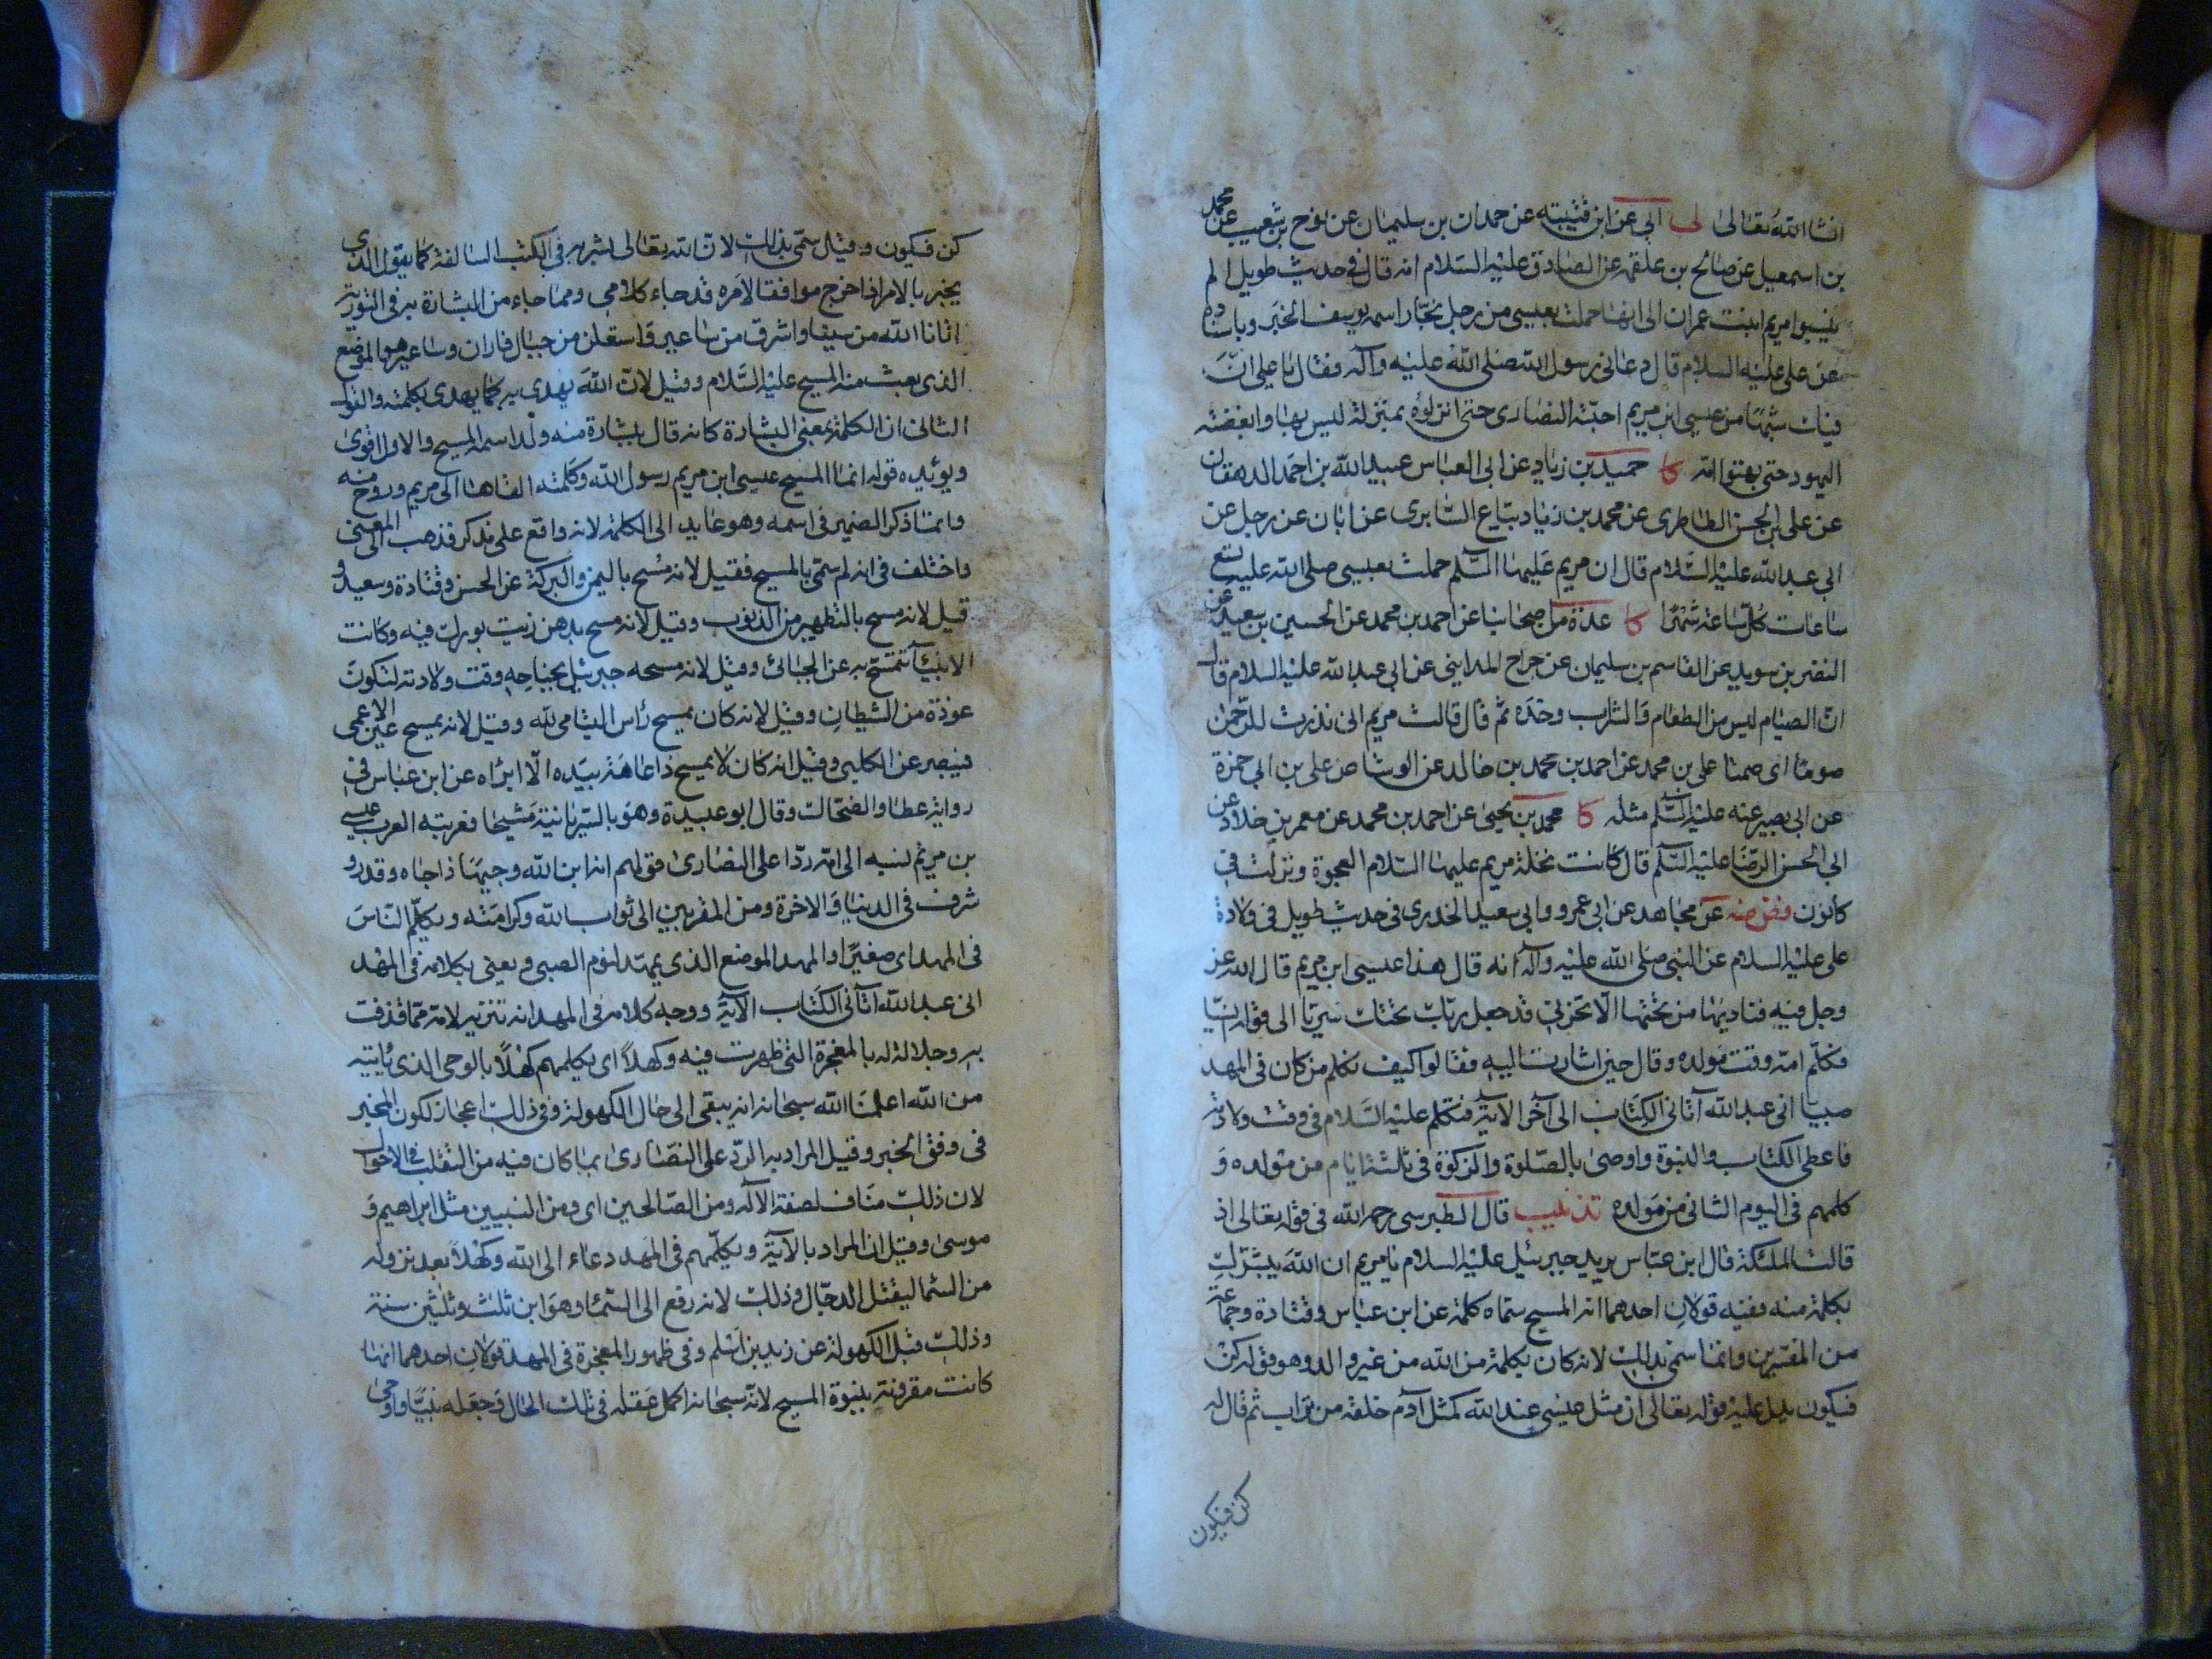 انشا الله تعالى لى ابي عن ابن قتيبة عن حمدان بن سليمان عن نوح بن شعيب عن محمد
بن اسمعيل عن صالح بن علقمه عن الصادق عليه السلام انه قال فى حديث طويل الم
ينسبوا مريم ابنت عمران الى انها حملت بعيسى من رجل نجار اسمه يوسف الخبر وباسناده
عن على عليه السلام قال دعانى رسول الله صلى الله عليه وآله فقال يا على انّ
فيك شبهًا من عيسى ابن مريم احبّته النصارى حتى انزلوه بمنزلة ليس بها وابغضته
اليهود حتى بهتوا امّه كا حميد بن زياد عن ابى العباس عبيد الله بن احمد الدهقان
عن على بن الحسن الطاطرى عن محمد بن زياد بيّاع السّابرى عن ابان عن رجل عن
ابى عبد الله عليه السّلام قال ان مريم عليها السّلم حملت بعيسى صلى الله عليه تسع
ساعات كل ساعة شهرًا كا عدة من اصحابنا عن احمد بن محمد عن الحسين بن سعيد عن
النضر بن سويد عن القاسم بن سليمان عن جراح المدايني عن ابى عبد الله عليه السلام قال
انّ الصيام ليس من الطعام والشراب وحده ثم قال قالت مريم انى نذرت للرّحمن
صومًا اى صمتا على بن محمد عن احمد بن محمد بن خالد عن الوشا عن على بن ابى حمزة
عن ابى بصير عنه عليه السّلم مثله كا محمد بن يحيى عن احمد بن محمد عن معمر بن خلاد عن
ابى الحسن الرّضا عليه السّلم قال كانت نخلة مريم عليها السّلام العجوة ونزلت فى
كانون فض ضه عن مجاهد عن ابى عمرو وابى سعيد الخدرى فى حديث طويل فى ولادة
على عليه السلام عن النبى صلى الله عليه وآله انه قال هذا عيسى ابن مريم قال الله عز
وجل فيه فناديها من تحتها الّا تحزنى قد جعل ربّك تحتك سريّا الى قوله انسيّا
فكلّم امّه وقت مولده وقال حين اشارت اليه فقالوا كيف نكلم من كان فى المهد
صبيا انى عبد الله آتانى الكتاب الى آخر الآية فتكلم عليه السّلام فى وقت ولادته
فاعطى الكتاب والنبوة واوصى بالصّلوة والزكوة فى ثلثة ايام من مولده و
كلمهم فى اليوم الثانى من مولده تذنيب قال الطبرسى رحمه الله فى قوله تعالى اذ
قالت الملئكة قال ابن عبّاس يريد جبرئيل عليه السلام يا مريم ان الله يبشّرك
بكلمة منه ففيه قولان احدهما انه المسيح سمّاه كلمة عن ابن عباس وقتادة وجماعة
من المفسّرين وانما سمى بذلك لانه كان بكلمة من الله من غير والد وهو قوله كن
فيكون يدل عليه قوله تعالى ان مثل عيسى عند الله كمثل آدم خلقه من تراب ثم قال له
كن فيكون
كن فيكون وقيل سمّى بذلك لانّ الله تعالى بشّر به فى الكتب السالفة كما يقول الذى
يخبر بالامر اذا خرج موافقا لامره قد جاء كلامى ومما جاء من البشارة به فى التورية
اتانا الله من سينا واشرق من ساعير واستعلن من جبال فاران وساعير هو الموضع
الذى بعث منه المسيح عليه السّلام وقيل لانّ الله يهدى به كما يهدى بكلمته والقول
الثانى ان الكلمة بمعنى البشارة كانه قال ببشارة منه ولد اسمه المسيح والاول اقوى
ويؤيده قوله انما المسيح عيسى ابن مريم رسول الله وكلمته القاها الى مريم وروح منه
وانما ذكر الضمير فى اسمه وهو عايد الى الكلمة لانه واقع على مذكر فذهب الى المعنى
واختلف فى انه لم سمّى بالمسيح فقيل لانه مُسح باليمن والبركة عن الحسن وقتادة وسعيد و
قيل لانه مسح بالتطهير من الذنوب وقيل لانه مسح بدهن زيت بورك فيه وكانت
الانبياء تمتسح به عن الجبائى وقيل لانه مسحه جبرئيل بجناحه وقت ولادته لتكون
عوذة من الشيطان وقيل لانه كان يمسح رأس اليتامى لله وقيل لانه يمسح عين الاعمى
فيبصر عن الكلبى وقيل انه كان لا يمسح ذا عاهة بيده الّا ابرأه عن ابن عباس فى
رواية عطا والضحّاك وقال ابو عبيدة وهو بالسّريانية مَشيحا فعربته العرب عيسى
بن مريم نسبه الى امّه ردّا على النصارى قولهم انه ابن الله وجيهًا ذا جاه وقدر و
شرف فى الدنيا والاخرة ومن المقربين الى ثواب الله وكرامته ويكلّم النّاس
فى المهد اى صغيرًا والمهد الموضع الذى يمهد لنوم الصبى ويعنى بكلامه فى المهد
انى عبد الله اتانى الكتاب الآية ووجه كلامه فى المهد انه تنزيه لامّه ممّا قذفت
به وجلالة له بالمعجزة التى ظهرت فيه وكهلًا اى يكلمهم كهلًا بالوحى الذى يأتيه
من الله اعلمنا الله سبحانه انه يبقى الى حال الكهولة وفى ذلك اعجاز لكون المخبر
فى وفق الخبر وقيل المراد به الردّ على النصّارى بما كان فيه من التقلب فى الاحوال
لان ذلك مناف لصفة الآله ومن الصّالحين اى ومن النبيين مثل ابراهيم و
موسى وقيل ان المراد بالآية ويكلّمهم فى المهد دعاء الى الله وكهلًا بعد نزوله
من السّما ليقتل الدجّال وذلك لانه رفع الى السّما وهو ابن ثلث وثلثين سنة
وذلك قبل الكهولة عن زيد بن اسلم وفى ظهور المعجزة فى المهد قولان احدهما انها
كانت مقرونة بنبوة المسيح لانّه سبحانه اكمل عقله فى تلك الحال وجعله نبيّا واوحى